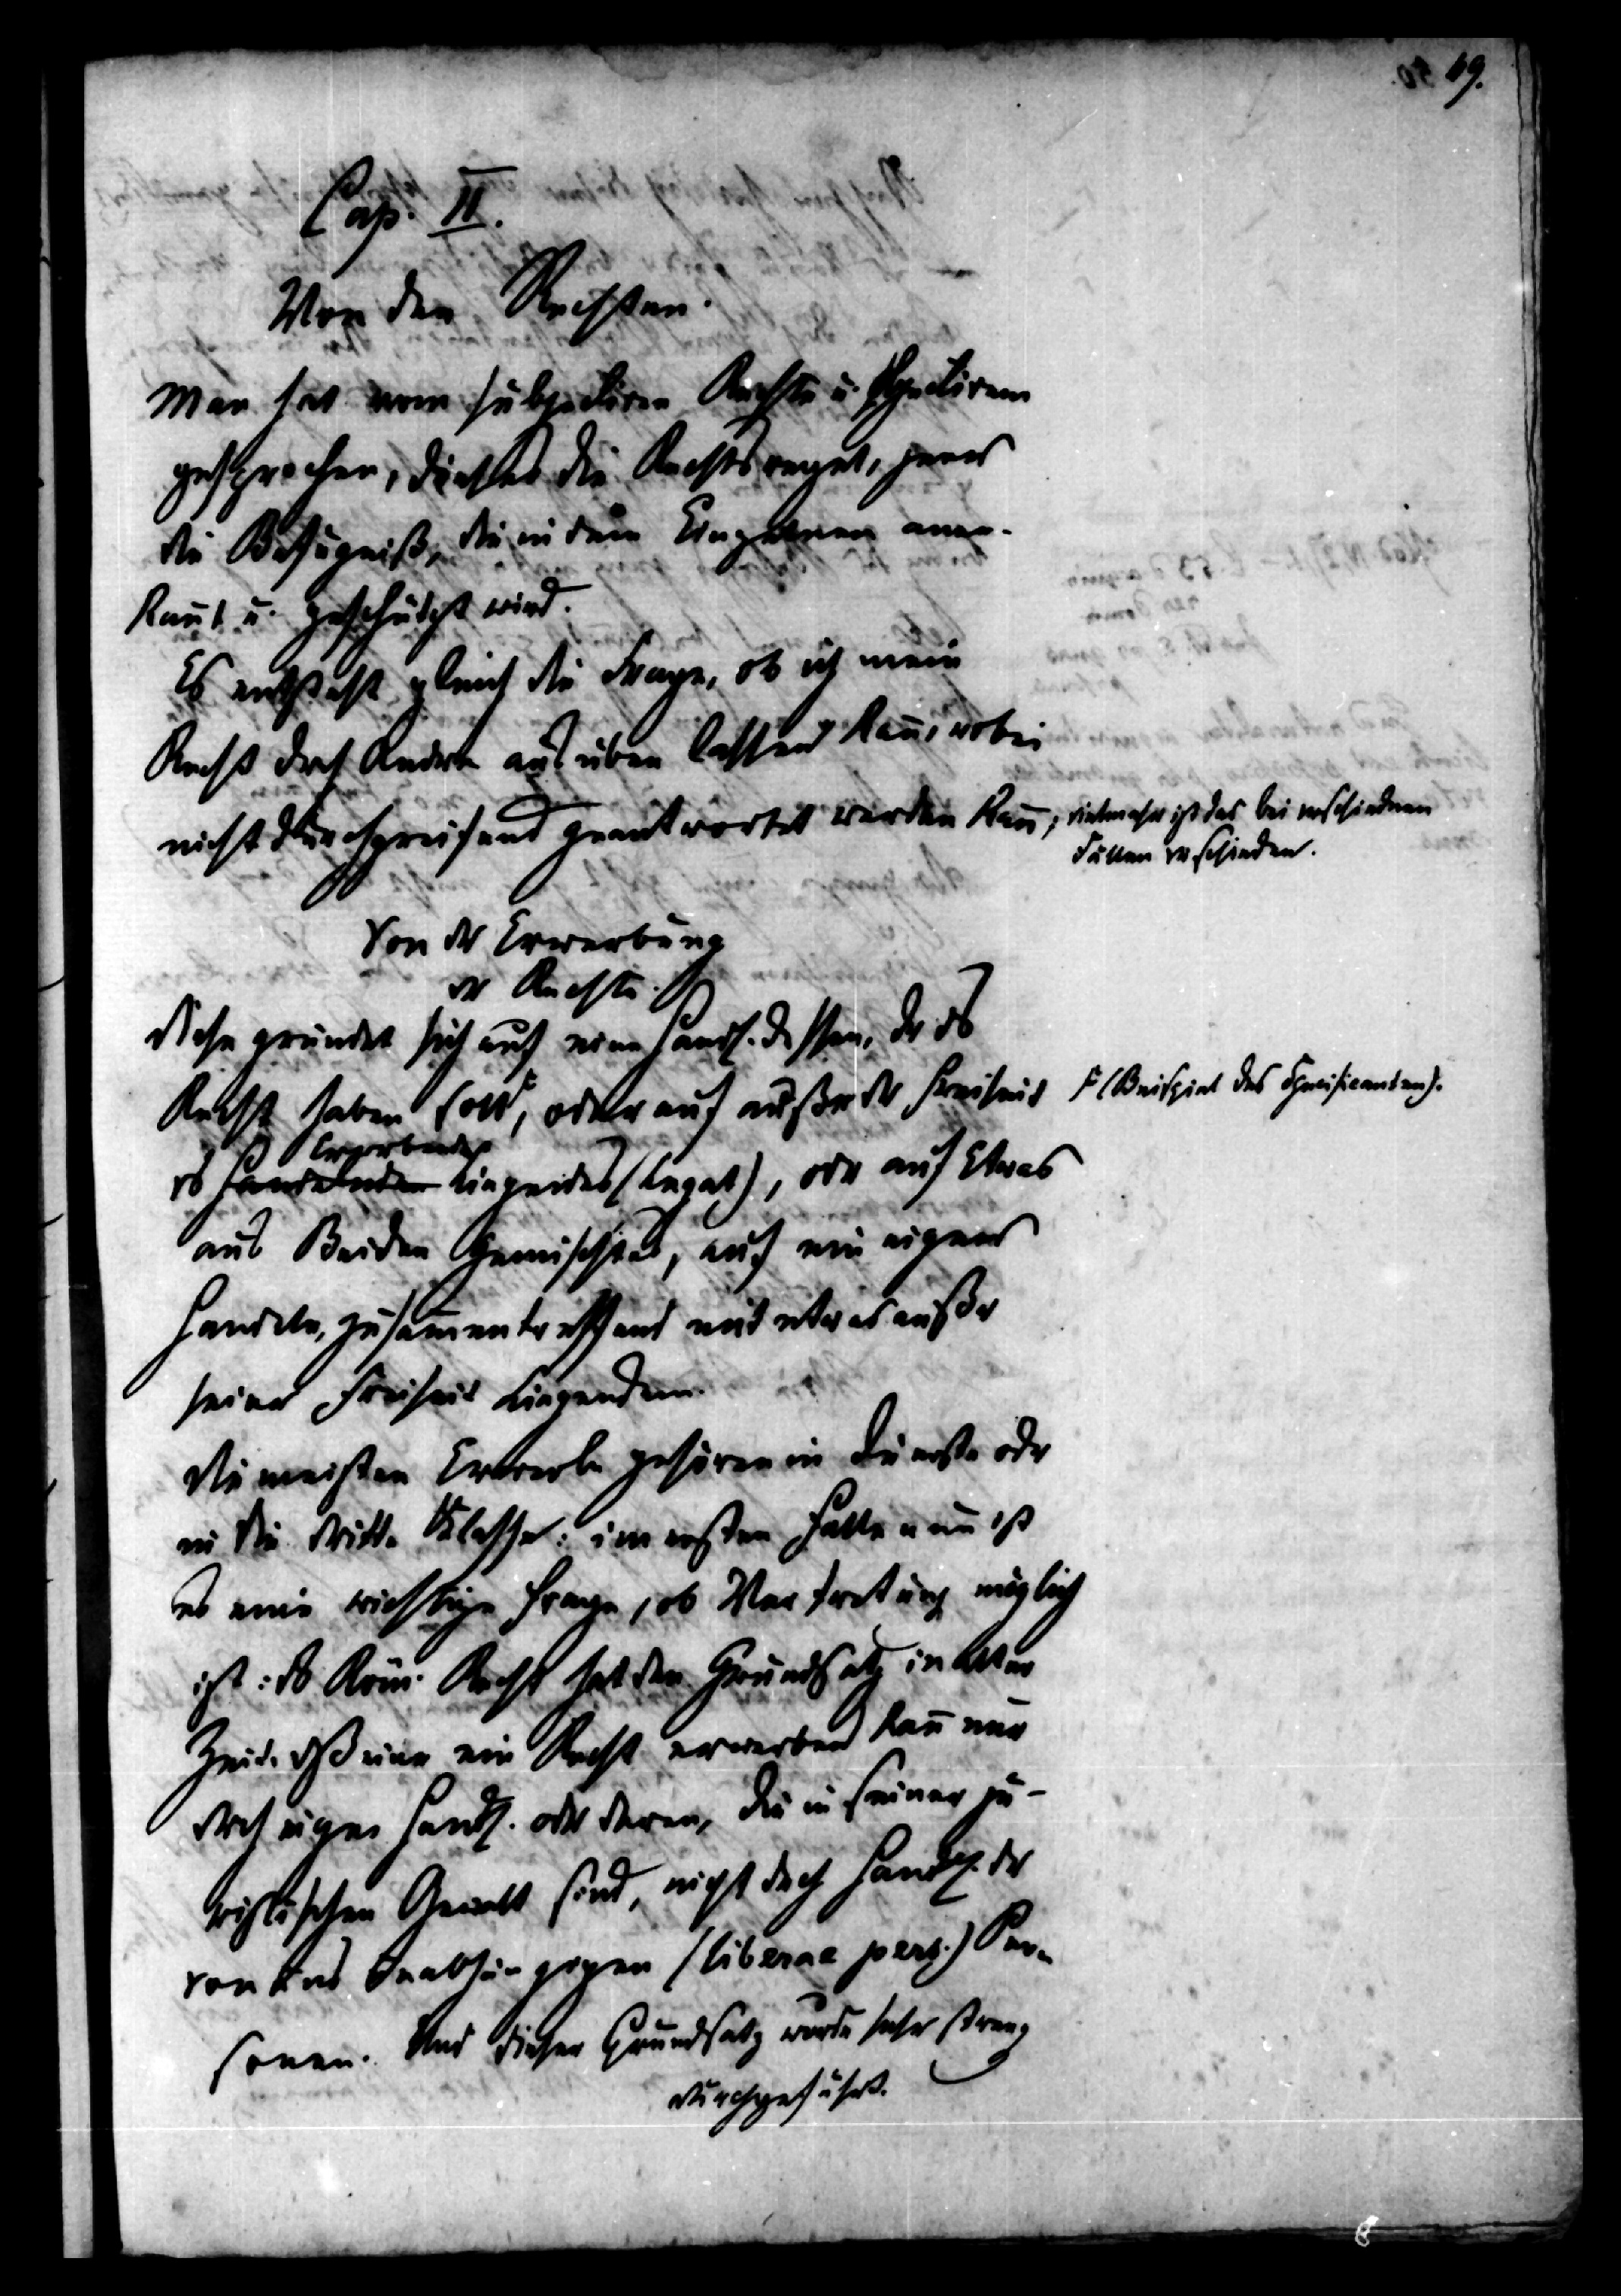 69.
Cap. II.
Von den Rechten.
Man hat vom subjectiven Rechte u. objectivem
gesprochen, dieses die Rechtsregel, jenes
die Befugniß, die in dem Einzelnen aner-
kannt u. geschützt wird.
Es entsteht gleich die Frage, ob ich mein
Recht dch Andere ausüben lassen kañ, wobei
nicht durchgreifend geantwortet werden kañ; vielmehr ist das bei verschiednen
Fällen verschieden.
Von der Erwerbung
der Rechte.
Diese gründet sich auf eine Handl. dessen, der ds
Recht haben soll, oder auf außer der Freiheit
F (Beispiel des Specificanten).
Erwerbenden
ds Handelnden Liegendes (Legat), oder auf Etwas
aus Beiden Gemischtes, auf ein eigenes
Handeln, zusam̄entreffend mit etwas außer
seiner Freiheit Liegendem.
Die meisten Erwerbe gehören in die erste oder
in die dritte Klasse: im ersten Falle nun ist
es eine wichtige Frage, ob Vertretung möglich
ist: ds Röm. Recht hat den Grundsatz in alter
Zeit, dß einer ein Recht erwerben kañ nur
dch eigne Handl. oder deren, die in seiner ju-
ristischen Gewalt sind, nicht dch Handl. der
von uns unabhängigen (liberae pers.) Per-
sonen. Und dieser Grundsatz wurde sehr streng
durchgeführt.